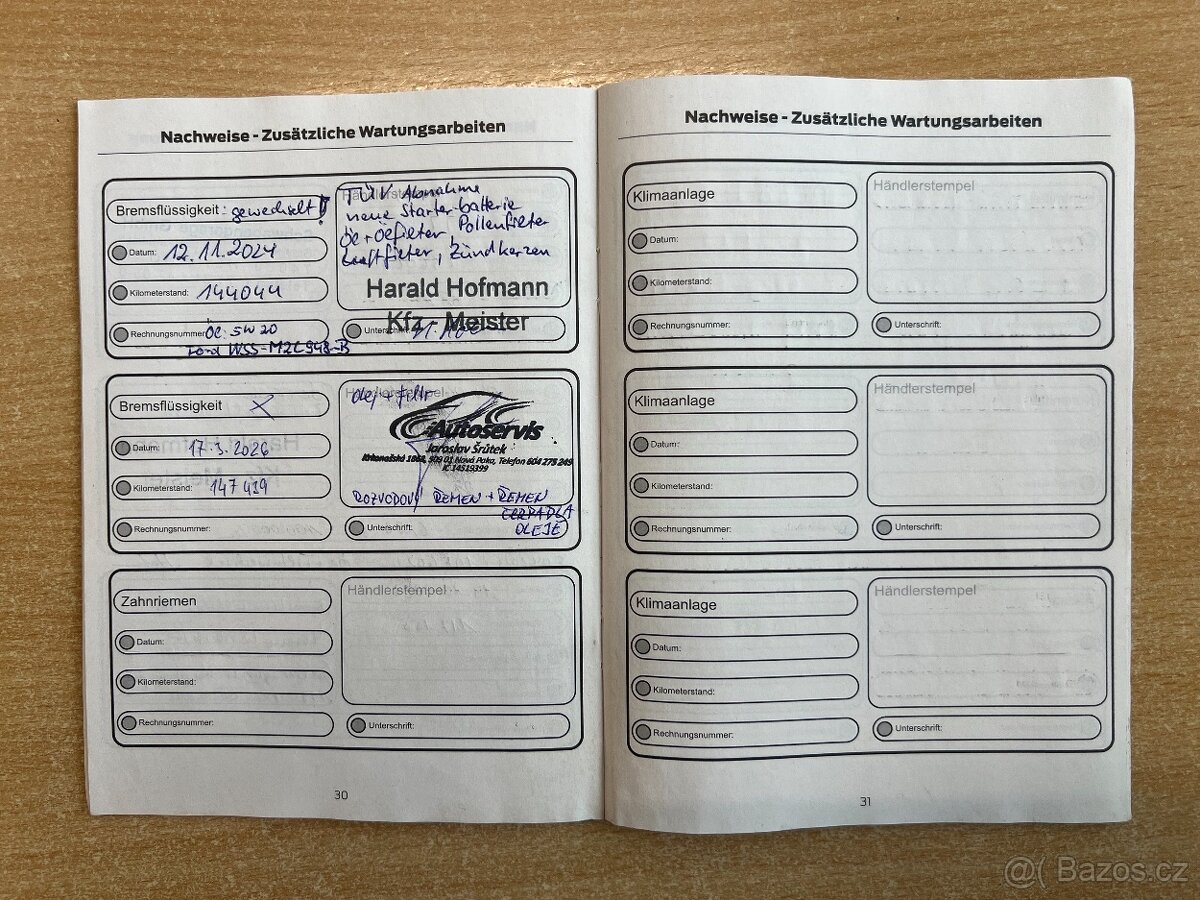 Nachweise - Zusätzliche Wartungsarbeiten
Bremsflüssigkeit : gewechselt!
Datum: 12.11.2024
Kilometerstand: 144044
Rechnungsnummer: Öl: 5W20
Ford WSS-M2C948-B
Händlerstempel
TÜV Abnahme
neue Starterbatterie
Öl+Ölfilter, Pollenfilter
Luftfilter, Zündkerzen
Harald Hofmann
Kfz - Meister
Unterschrift:
Bremsflüssigkeit X
Datum: 17.3.2026
Kilometerstand: 147 439
Rechnungsnummer:
Händlerstempel
olej + filtr
Autoservis
Jaroslav Šrůtek
Krkonošská 1868, 509 01 Nová Paka, Telefon 604 275 249
IČ 14519399
ROZVODOVÝ ŘEMEN + ŘEMEN
ČERPADLA
OLEJE
Unterschrift:
Zahnriemen
Datum:
Kilometerstand:
Rechnungsnummer:
Händlerstempel
Unterschrift:
30
Nachweise - Zusätzliche Wartungsarbeiten
Klimaanlage
Datum:
Kilometerstand:
Rechnungsnummer:
Händlerstempel
Unterschrift:
Klimaanlage
Datum:
Kilometerstand:
Rechnungsnummer:
Händlerstempel
Unterschrift:
Klimaanlage
Datum:
Kilometerstand:
Rechnungsnummer:
Händlerstempel
Unterschrift:
31
Bazos.cz